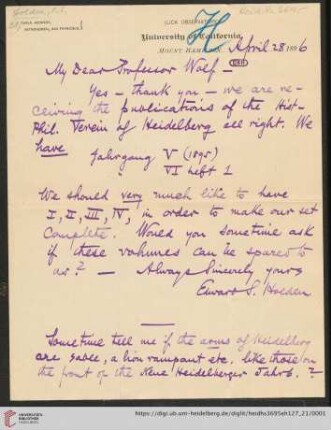 Holden, E. S.
LICK OBSERVATORY
University of California
MOUNT HAMILTON,
April 28 1896
My Dear Professor Wolf –
Yes – thank you – we are re-
ceiving the publications of the Hist-
Phil. Verein of Heidelberg all right. We
have
Jahrgang V (1895)
VI heft 1
We should very much like to have
I, II, III, IV, in order to make our set
complete. Would you sometime ask
if these volumes can be spared to
us? — Always Sincerely yours
Edward S. Holden
Sometime tell me if the arms of Heidelberg
are sable, a lion rampant etc. like those on
the front of the Neue Heidelberger Jahrb. ?
UNIVERSITÄTS-
BIBLIOTHEK
HEIDELBERG
https://digi.ub.uni-heidelberg.de/diglit/heidhs3695eh127_21/0001